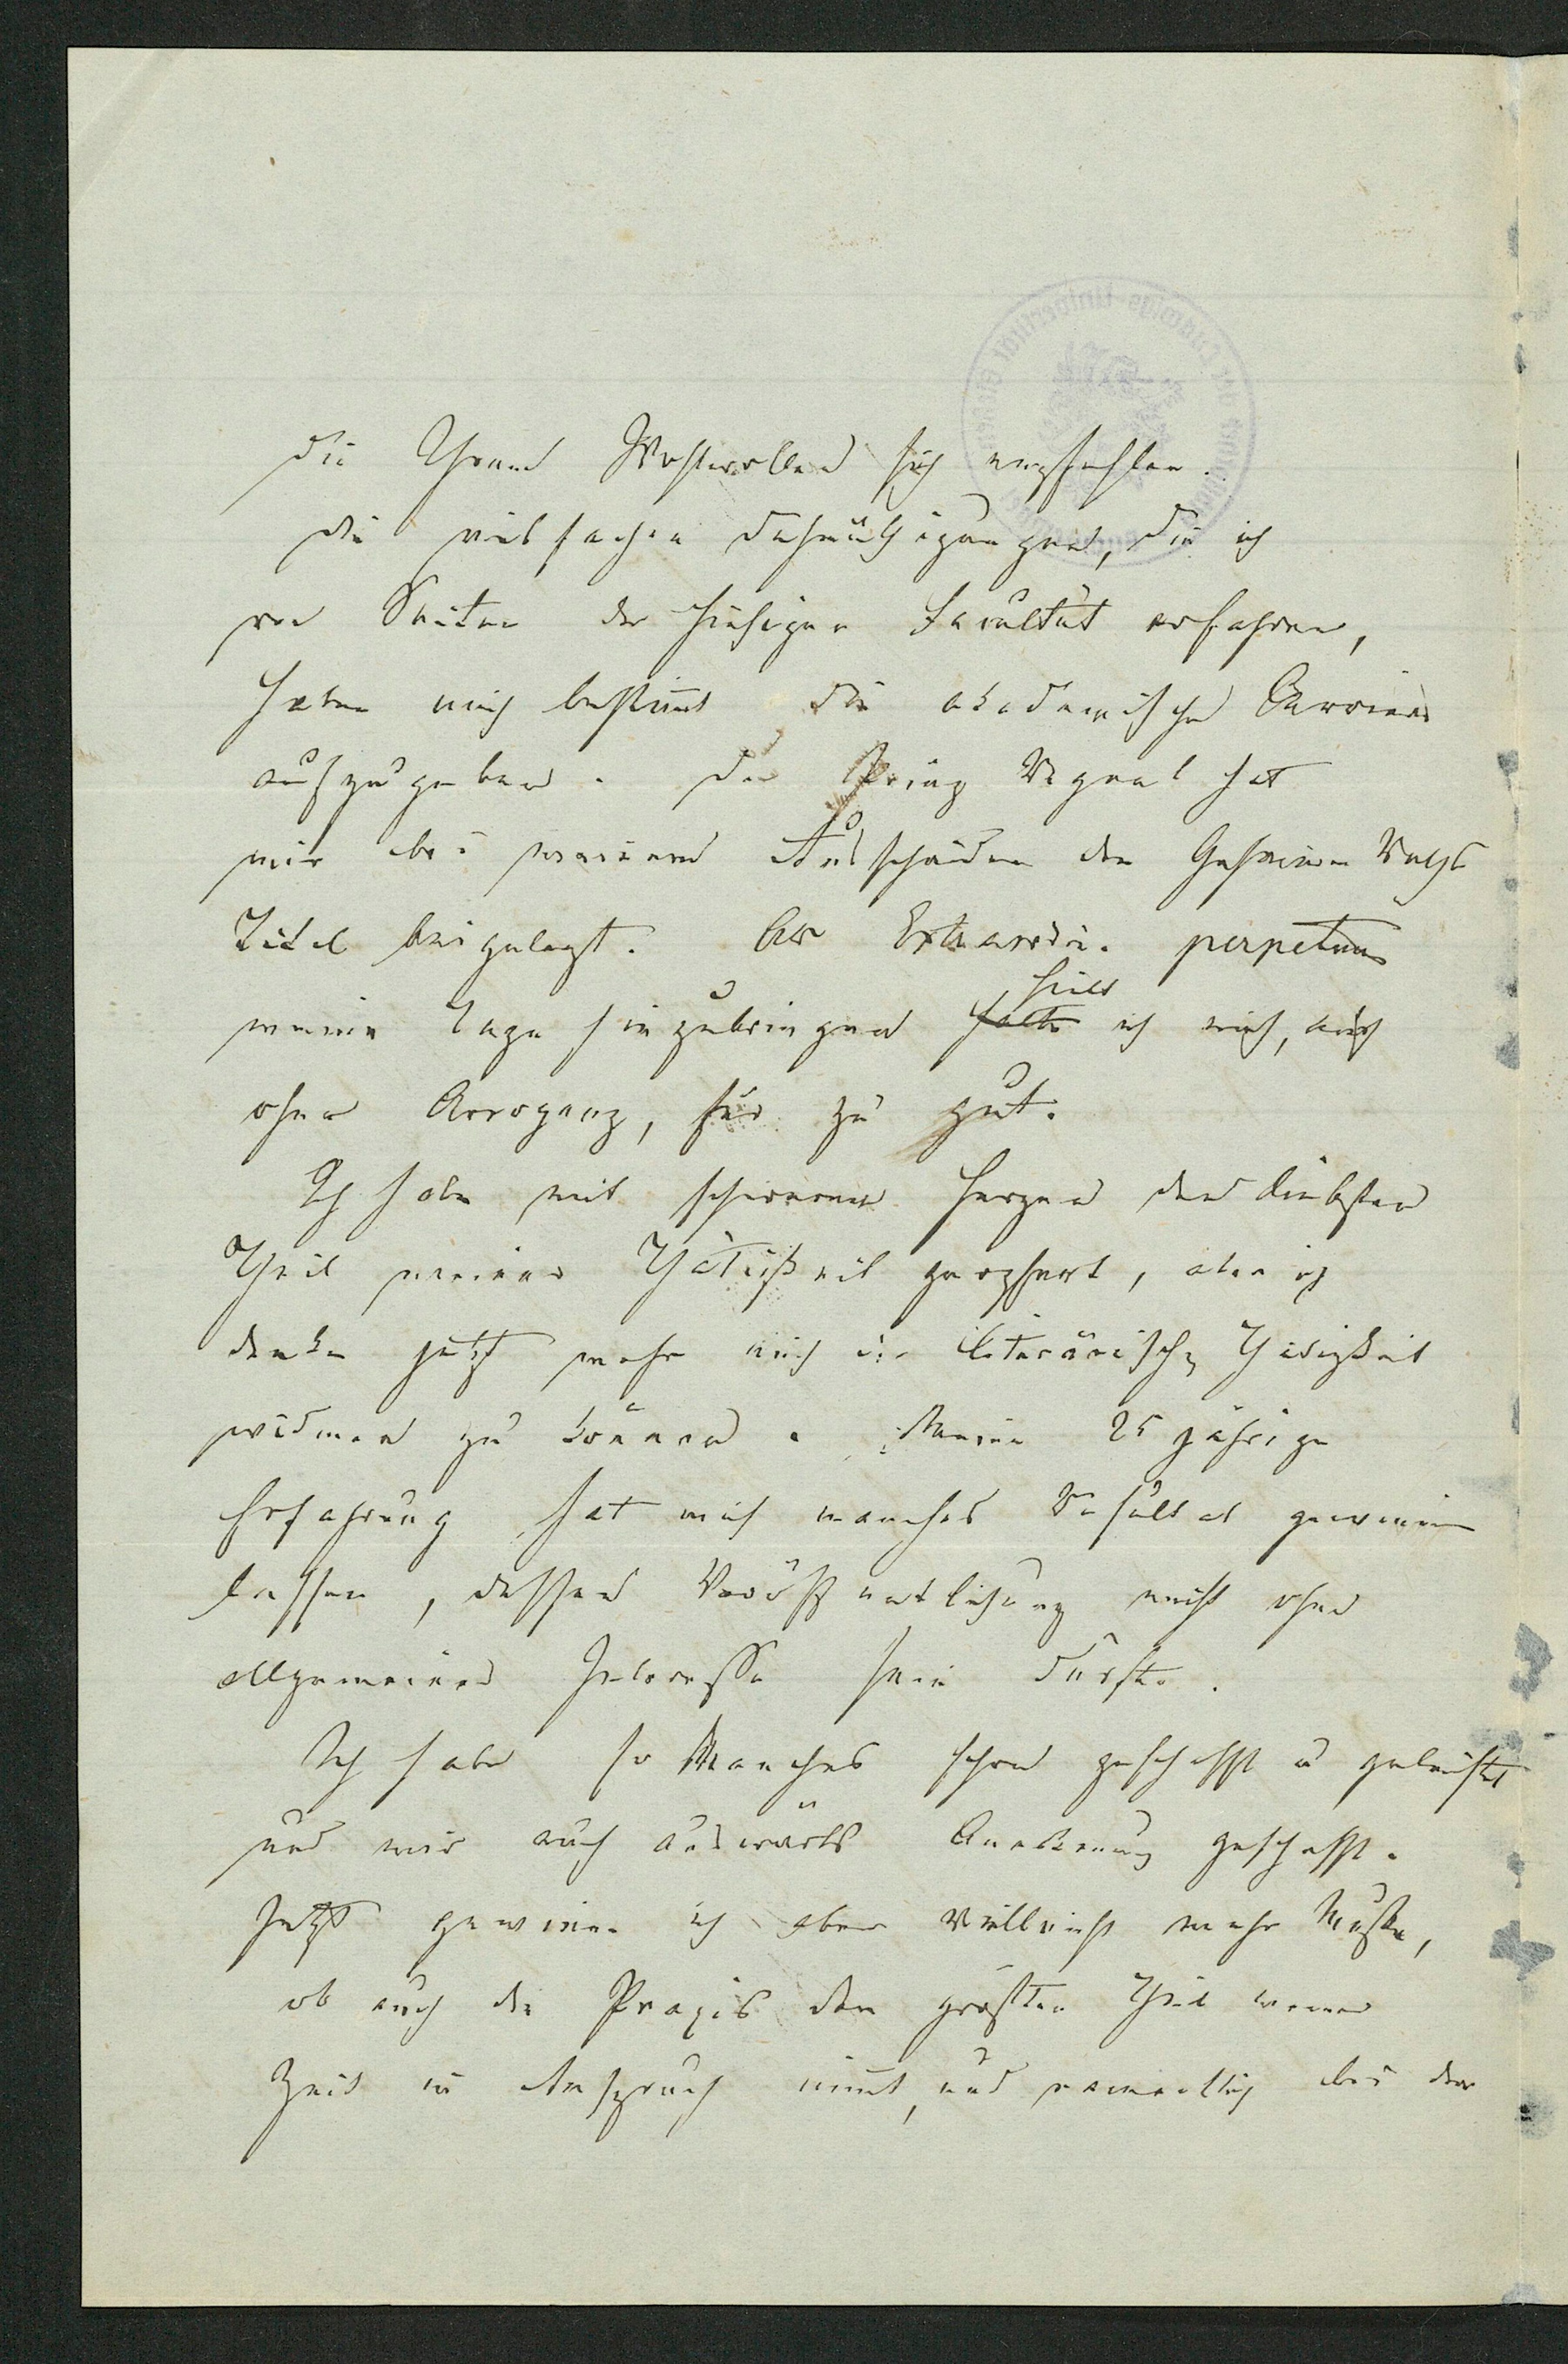 die Ihrem Wohlwollen sich empfehlen.
Die vielfachen Demüthigungen, die ich
von Seiten der hiesigen Facultät erfahren,
haben mich bestimt die akademische Carriere
aufzugeben. Der Prinz Regent hat
mir bei meinem Ausscheiden den Geheimen Raths
Titel beigelegt. Als Extraordin. perpetuus
meine Tage hinzubringen halte hielt ich mich, auch
ohne Arroganz, für zu gut.
Ich habe mit schwerem Herzen den liebsten
Theil meiner Thätigkeit geopfert, aber ich
denke jetzt mehr mich der literärischen Thätigkeit
widmen zu können. Meine 25 jährige
Erfahrung hat mich manches Resultat gewinnen
lassen, dessen Veröffentlichung nicht ohne
allgemeines Interesse sein dürfte.
Ich habe so Manches schon geschafft u geleistet
und mir auch auswärts Anerkennung geschafft.
Jetzt gewinne ich aber vielleicht mehr Muße,
ob auch die Praxis den größten Theil meiner
Zeit in Anspruch nimt, und namentlich bei der